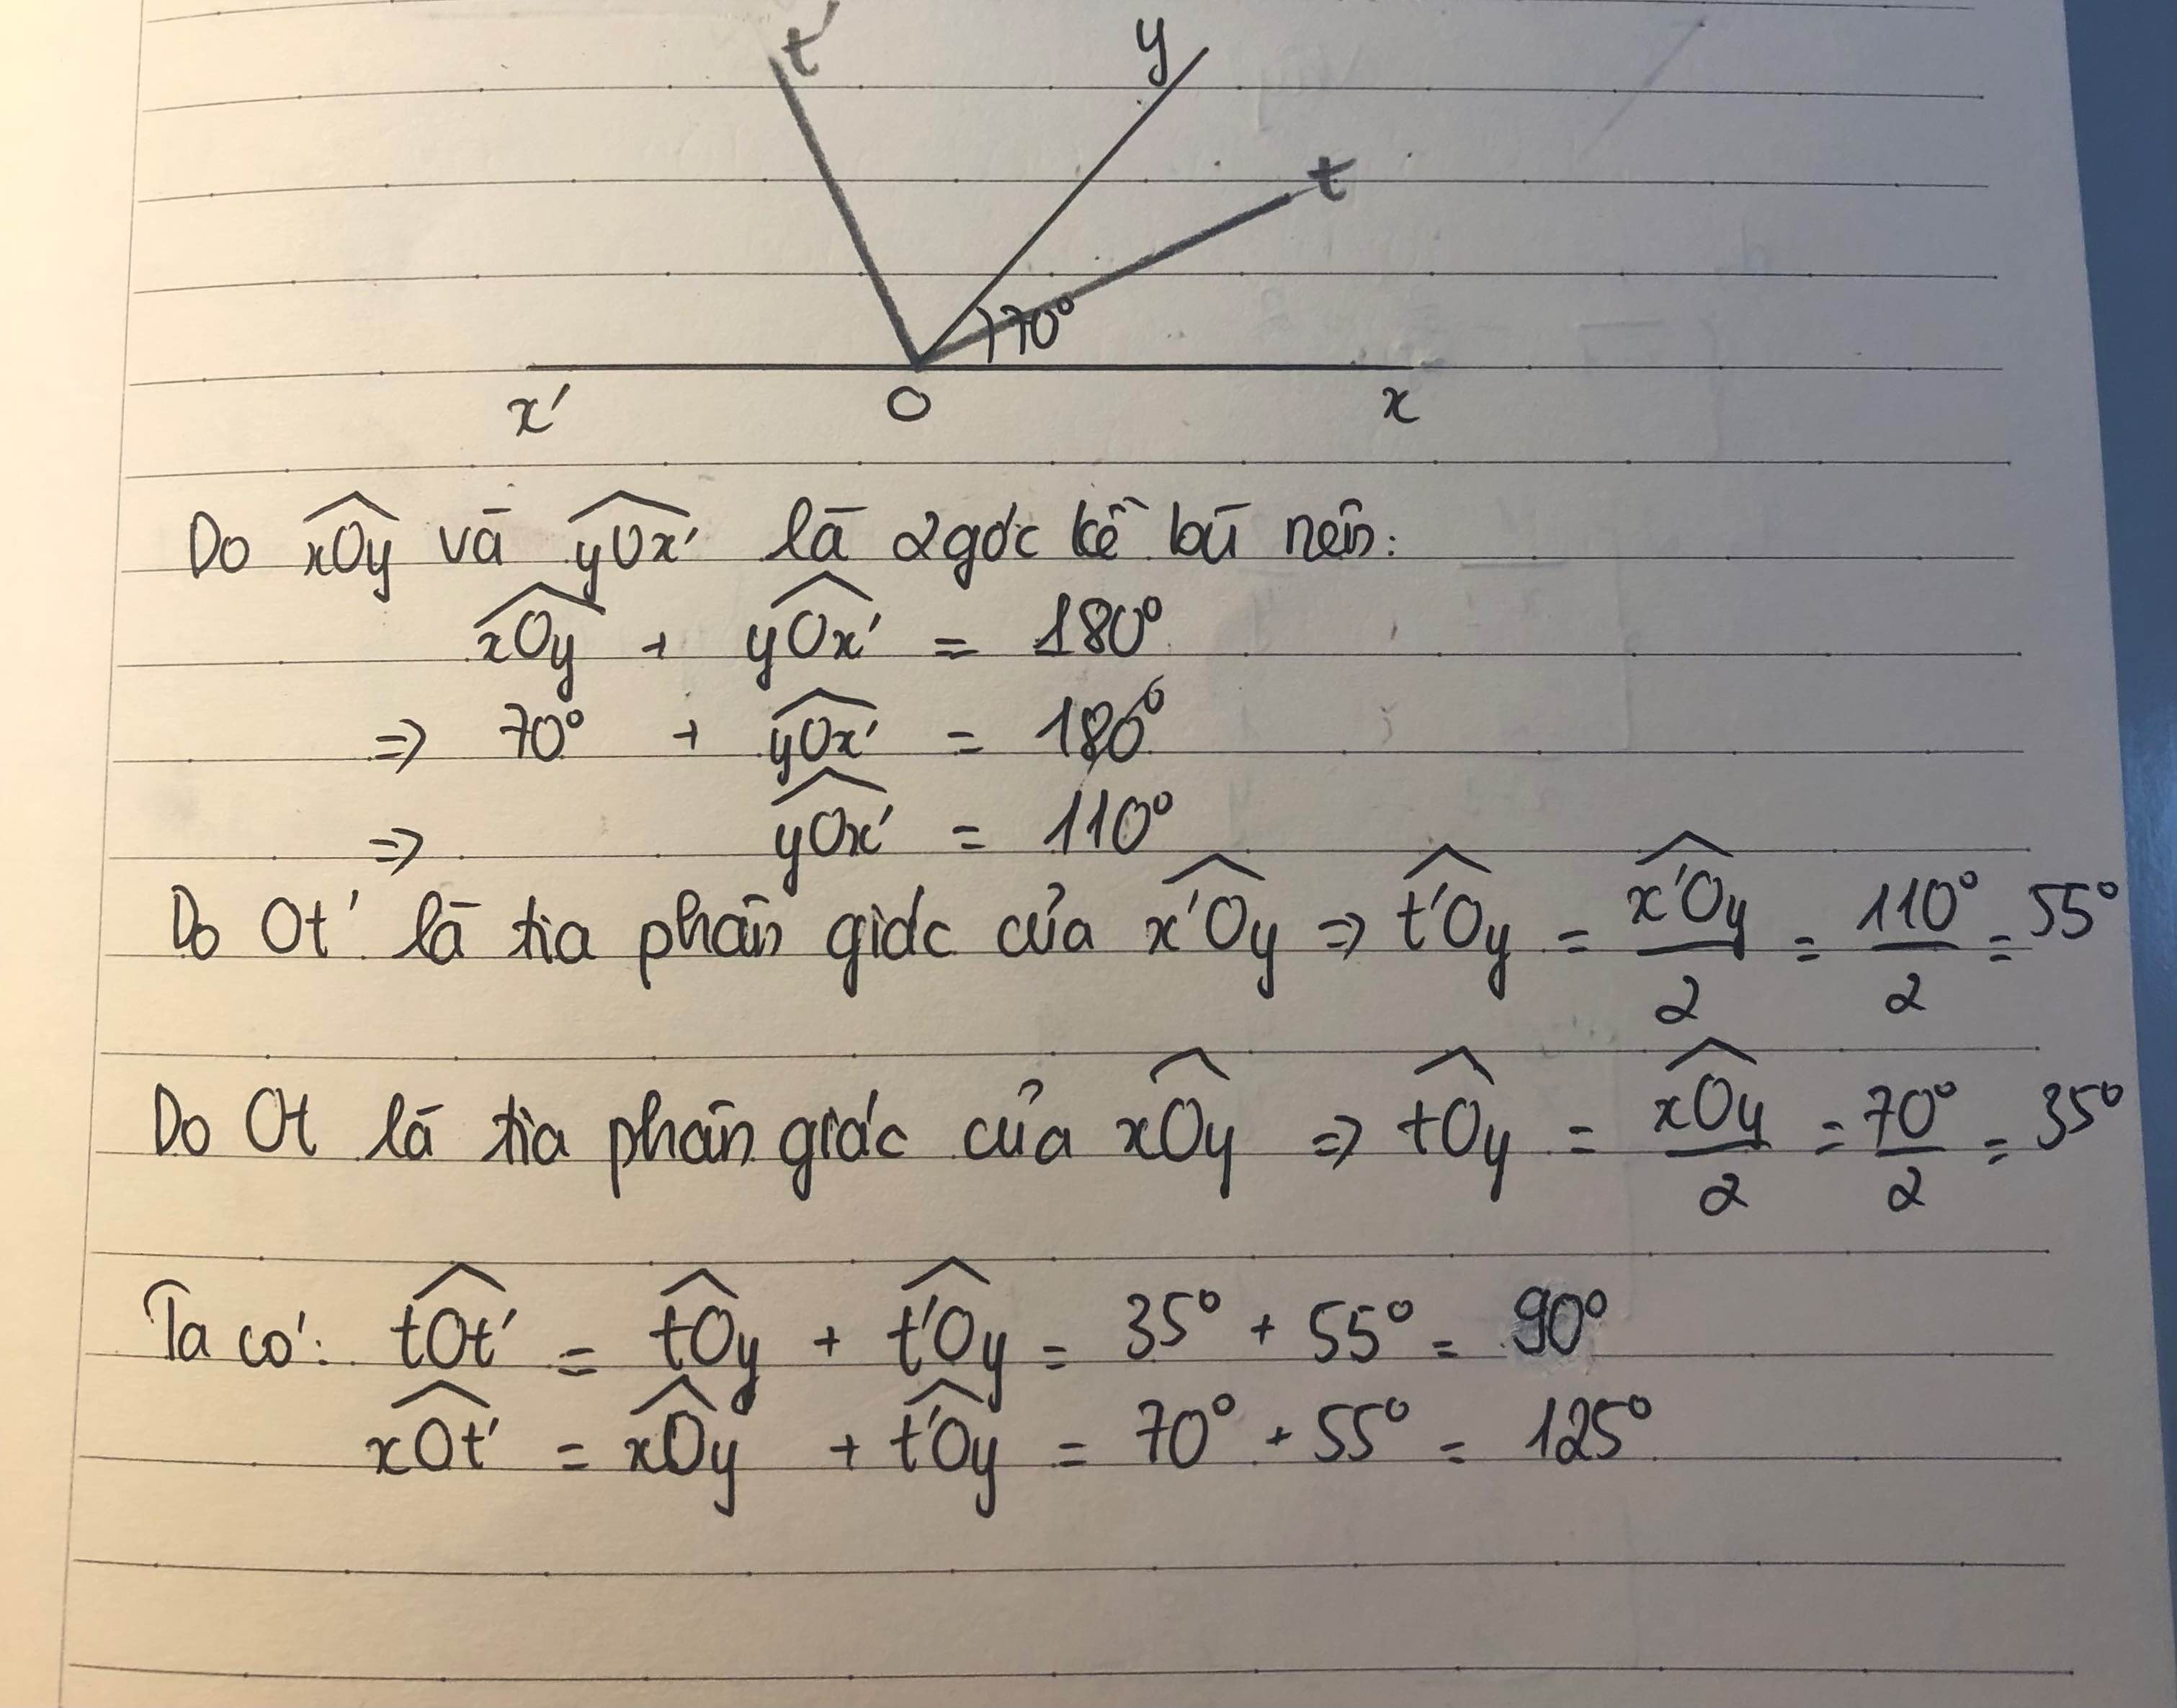 t'
y
t
70°
x' O x
Do xOy và yOx' là 2 góc kề bù nên:
xOy + yOx' = 180°
=> 70° + yOx' = 180°
=> yOx' = 110°
Do Ot' là tia phân giác của x'Oy => t'Oy = x'Oy/2 = 110°/2 = 55°
Do Ot là tia phân giác của xOy => tOy = xOy/2 = 70°/2 = 35°
Ta có: tOt' = tOy + t'Oy = 35° + 55° = 90°
xOt' = xOy + t'Oy = 70° + 55° = 125°